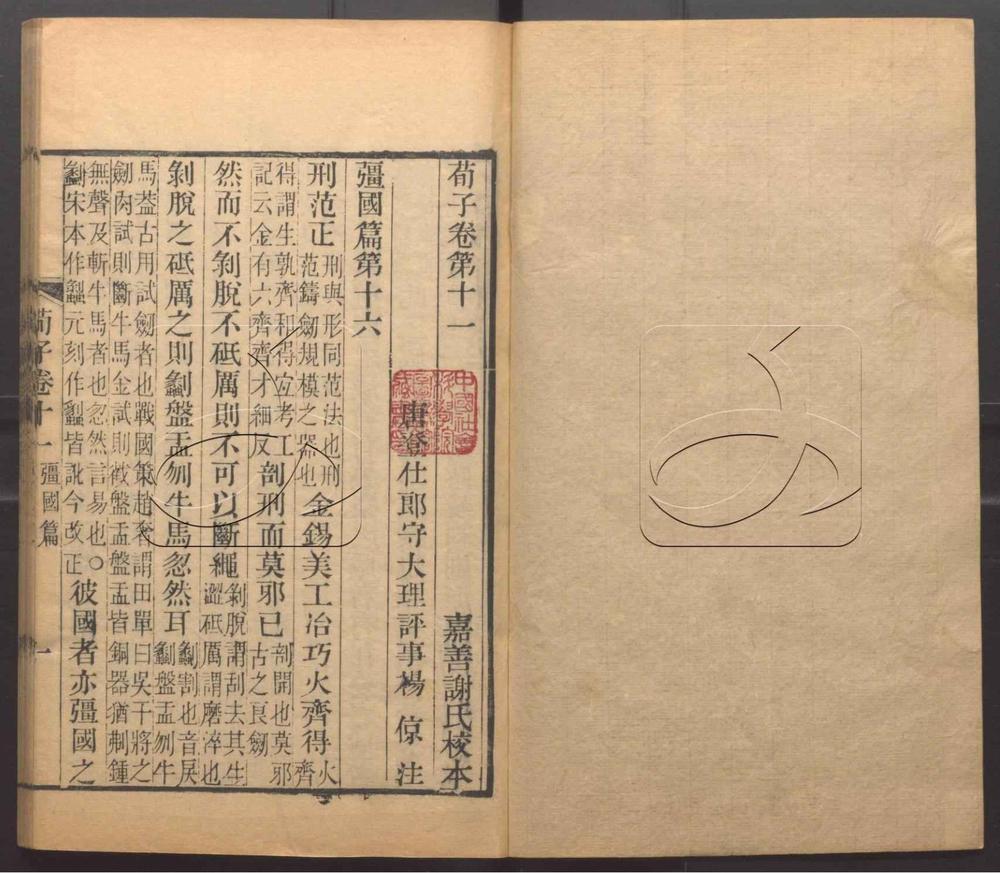 荀子卷第十一 嘉善謝氏校本
唐登仕郎守大理評事楊 倞 注
彊國篇第十六
刑范正 刑與形同范法也刑 范鑄劒規模之器也 金錫美工冶巧火齊得 火 齊
得謂生孰齊和得宜考工 記云金有六齊齊才細反 剖刑而莫邪已 剖開也莫邪 古之良劒
然而不剝脫不砥厲則不可以斷繩 剝脫謂刮去其生 澀砥厲謂磨淬也
剝脫之砥厲之則劙盤盂刎牛馬忽然耳 劙割也音戾 劙盤盂刎牛
馬葢古用試劒者也戰國策趙奢謂田單曰吳干將之 劒肉試則斷牛馬金試則截盤盂盤盂皆銅器猶刜鍾
無聲及斬牛馬者也忽然言易也○ 劙宋本作 元刻作 皆訛今改正 彼國者亦彊國之
荀子卷十一 彊國篇 一